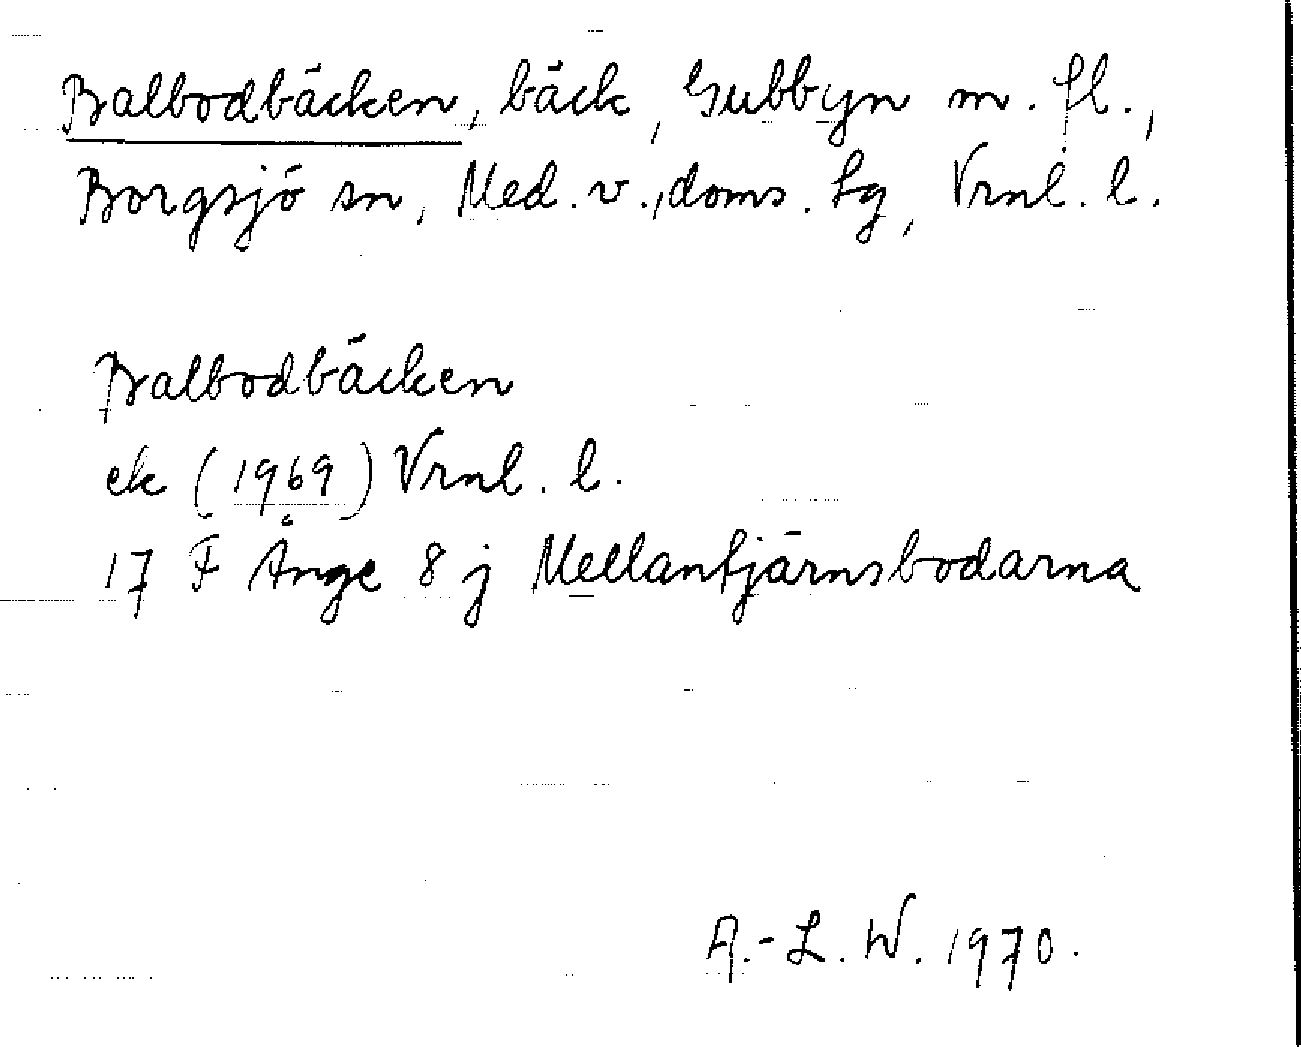 Balbodbäcken, bäck, Gubbyn m. fl.,
Borgsjö sn, Med. v., doms. tg, Vrnl. l.
Balbodbäcken
ek (1969) Vrnl. l.
17 F Ånge 8 j Mellantjärnsbodarna
A.-L. W. 1970.